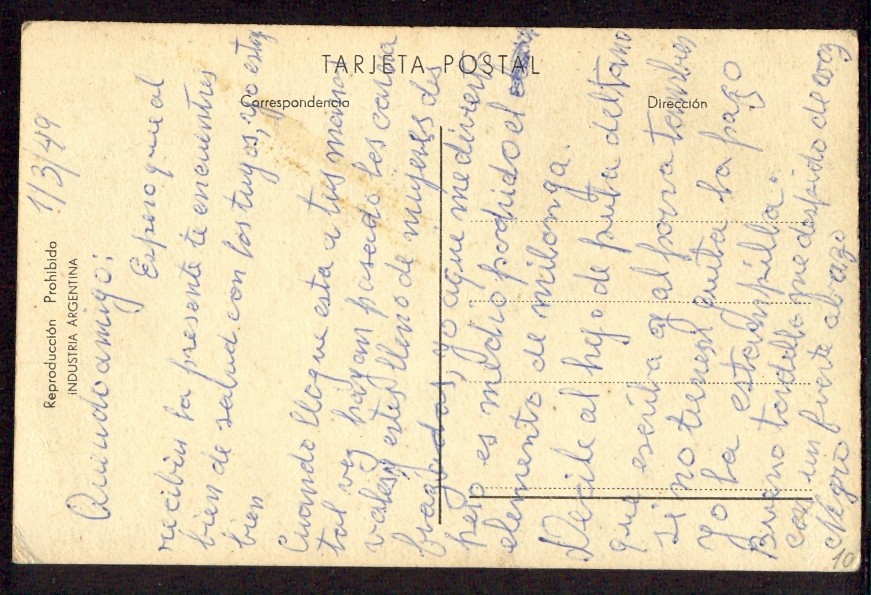 TARJETA POSTAL
Correspondencia
Dirección
Reproducción Prohibido
INDUSTRIA ARGENTINA
1/3/49
Querido amigo:
Espero que al
recibir la presente te encuentres
bien de salud con los tuyos, yo estoy
bien
Cuando llegue esta a tus manos
tal vez hayan pasado los carna
vales, y estes lleno de mujeres des
yo aqui me divierto
pero es medio podrido el
elemento de milonga.
Decile al hijo de puta del tano
que escriba y al porra tambien
si no tienen guita la pago
yo la estampilla.
Bueno me despido de vos
con un fuerte abrazo
Negro
10